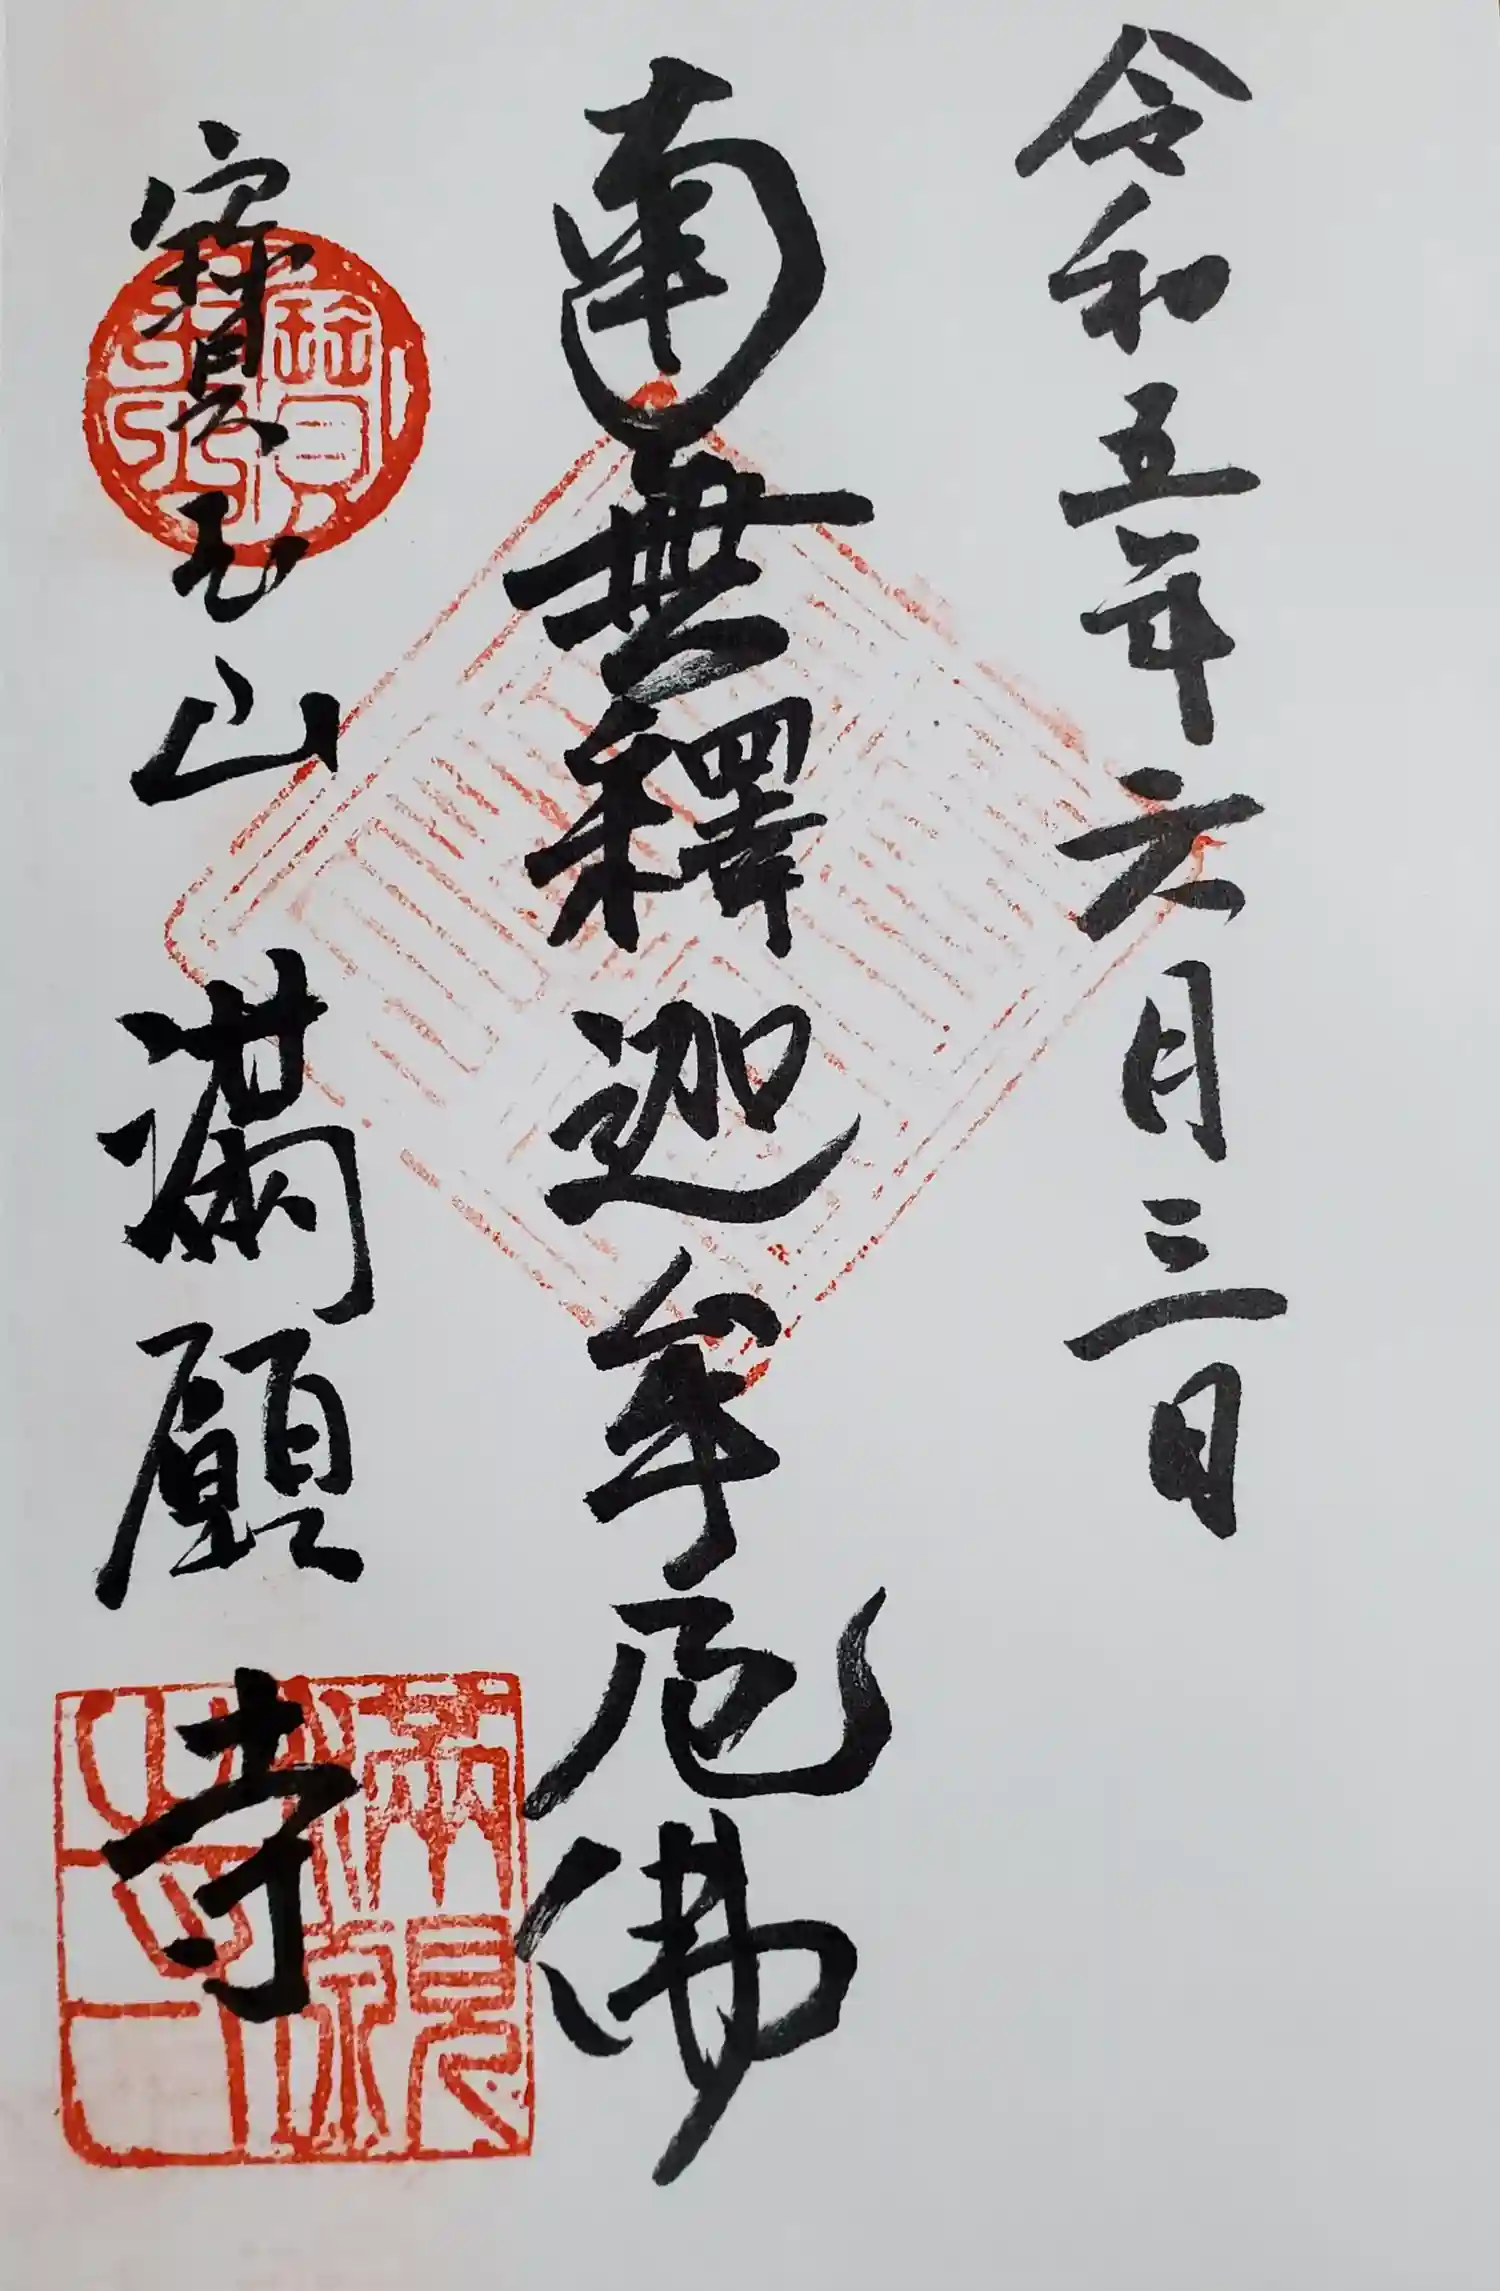 令和五年六月三日
南無釋迦牟尼佛
寳玉山 満願寺